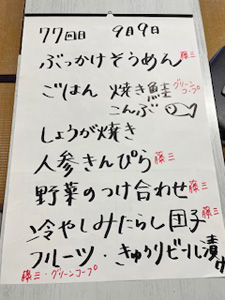 77回目 9月9日
ぶっかけそうめん 藤三
ごはん 焼き鮭 グリーンコープ
こんぶ
しょうが焼き
人参きんぴら 藤三
野菜のつけ合わせ 藤三
冷やしみたらし団子 藤三
フルーツ・きゅうりビール漬け
藤三・グリーンコープ